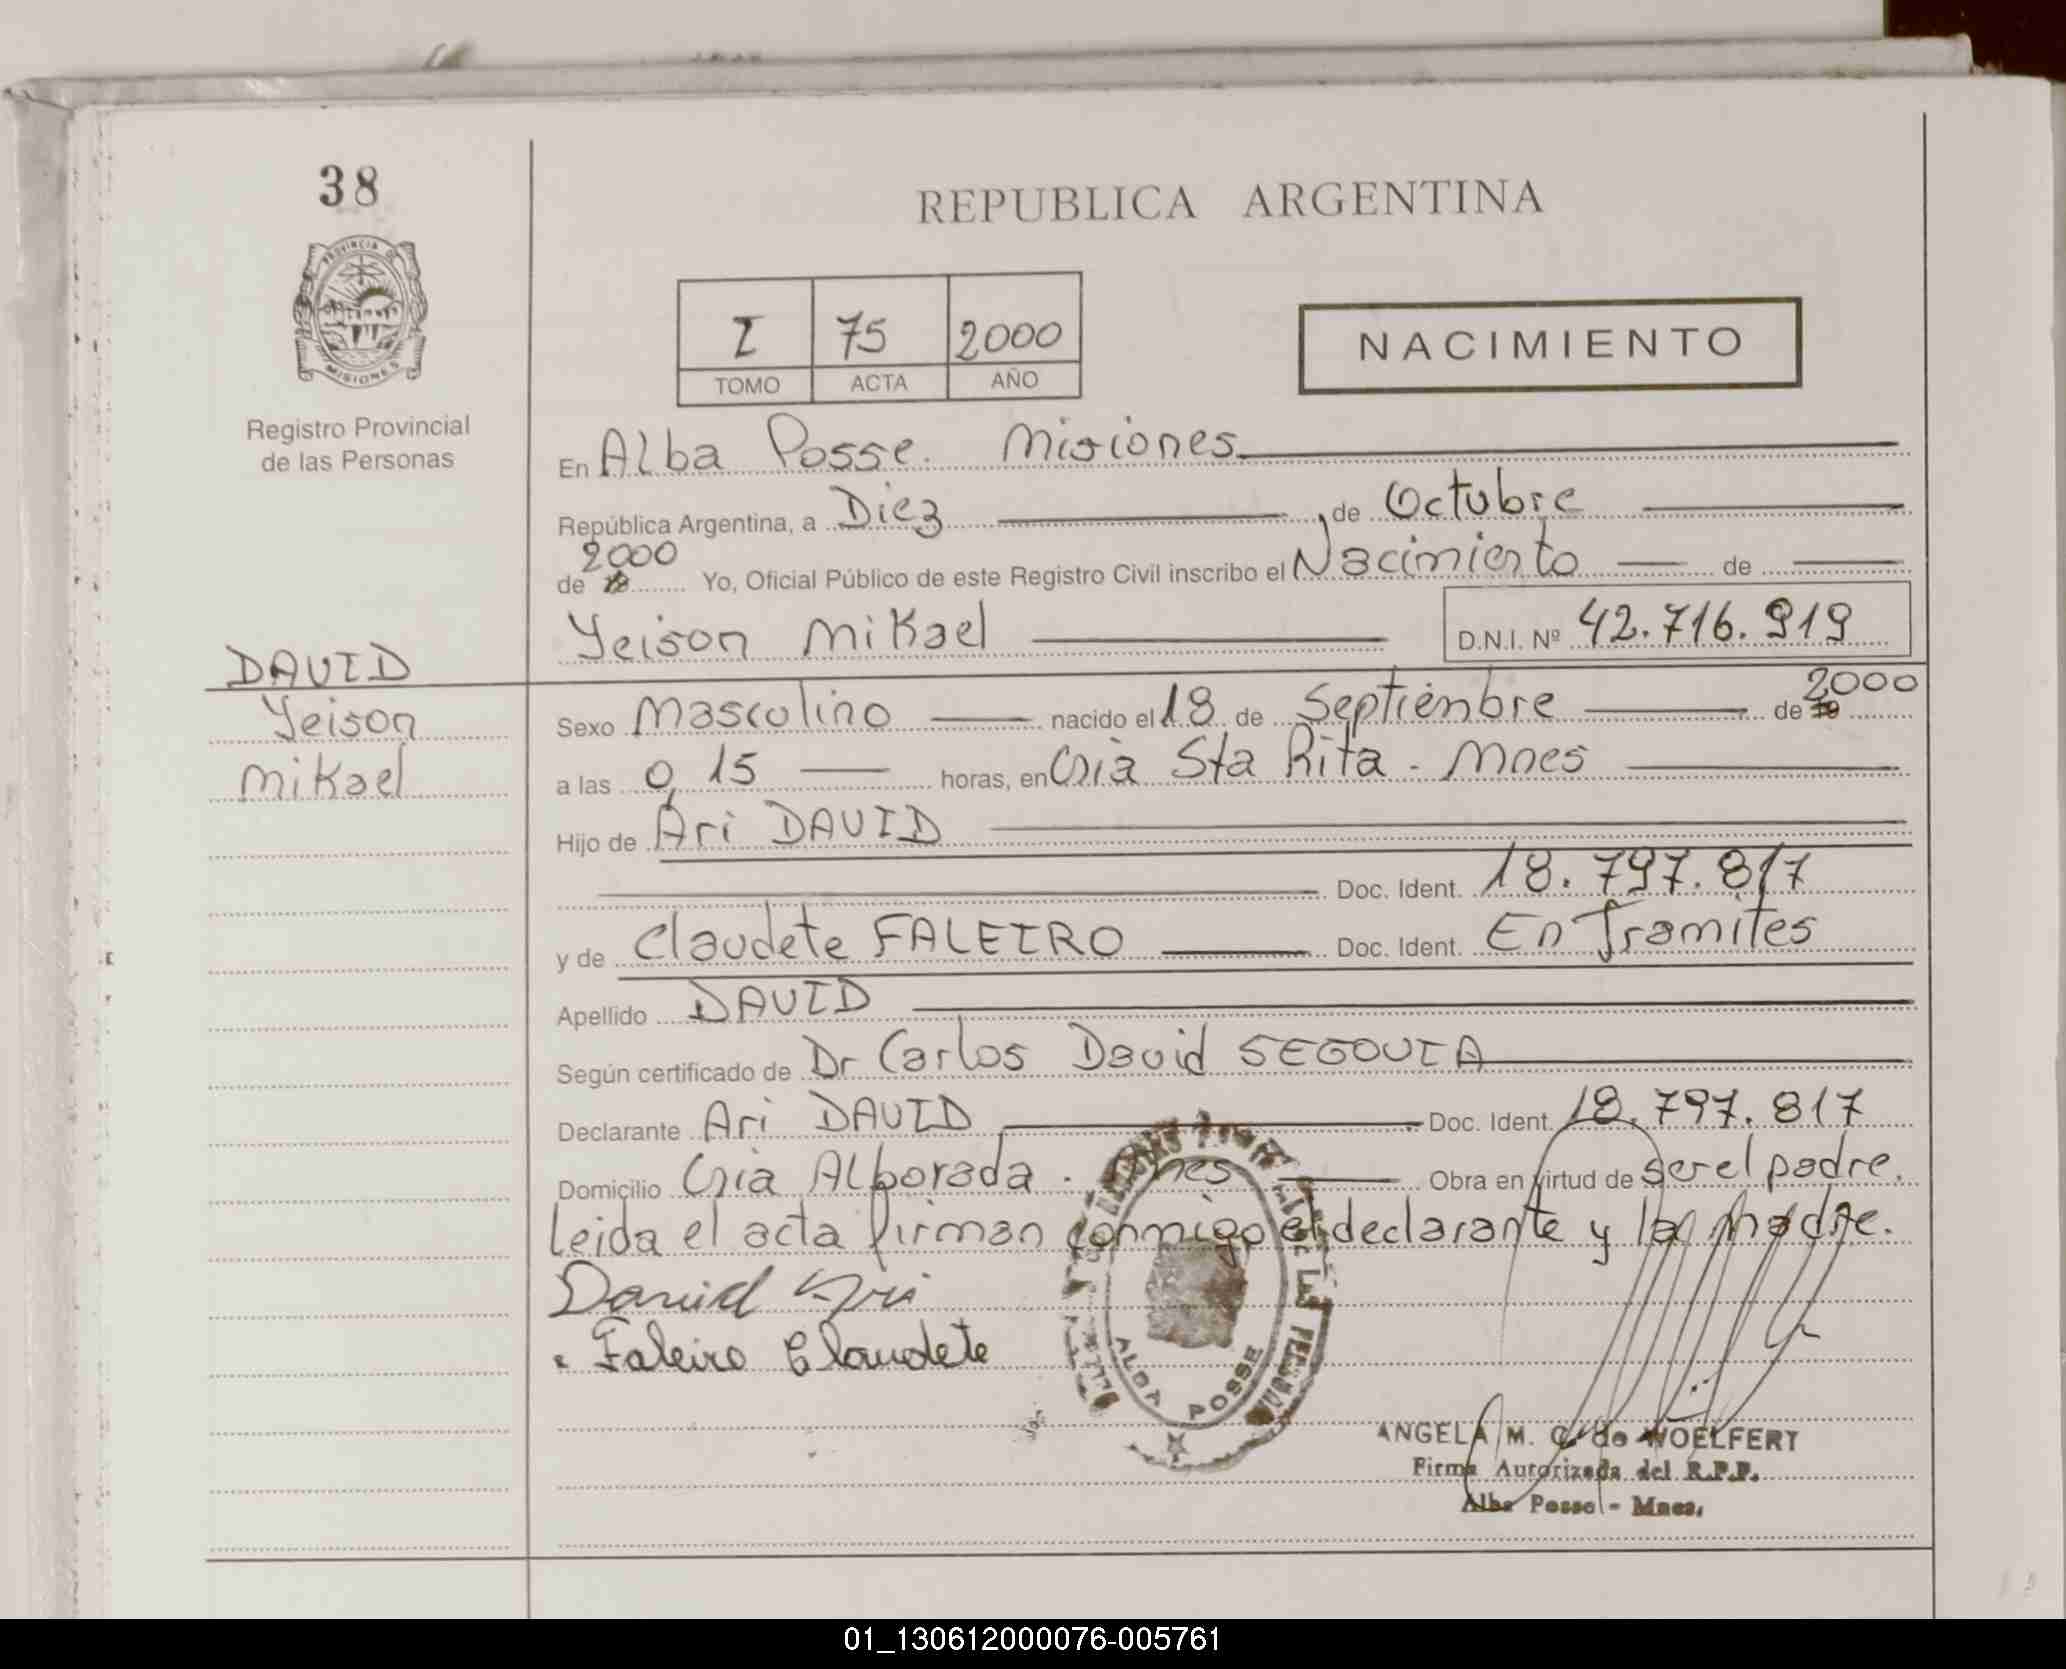 38
PROVINCIA DE
MISIONES
Registro Provincial
de las Personas
REPUBLICA ARGENTINA
I 75 2000
TOMO ACTA AÑO
NACIMIENTO
En Alba Posse. Misiones
República Argentina, a Diez, de Octubre
2000
de 19 Yo, Oficial Público de este Registro Civil inscribo el Nacimiento de
Yeison Mikael D.N.I. Nº 42.716.919
DAVID
Yeison
Mikael
2000
Sexo Masculino nacido el 18 de Septiembre de 19
a las 0,15 horas, en Cnia Sta Rita - Mnes
Hijo de Ari DAVID
Doc. Ident. 18.797.817
y de Claudete FALEIRO Doc. Ident. En Tramites
Apellido DAVID
Según certificado de Dr Carlos David SEGOVIA
Declarante Ari DAVID Doc. Ident. 18.797.817
Domicilio Cnia Alborada - Mnes Obra en virtud de ser el padre.
Leida el acta firman conmigo el declarante y la madre.
David Ari
Faleiro Claudete
ALBA POSSE
ANGELA M. C. de WOELFERT
Firma Autorizada del R.P.P.
Alba Posse - Mnes.
01_130612000076-005761